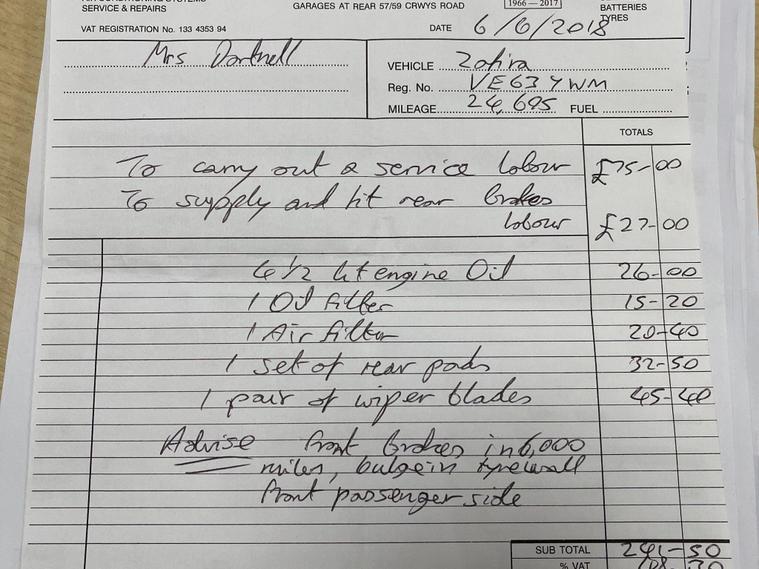 SERVICE & REPAIRS
GARAGES AT REAR 57/59 CRWYS ROAD
1966 — 2017
BATTERIES
TYRES
VAT REGISTRATION No. 133 4353 94
DATE 6/6/2018
Mrs Dartnell
VEHICLE Zafira
Reg. No. VE63 YWM
MILEAGE 24,695 FUEL
TOTALS
To carry out a service labour £75-00
To supply and fit rear brakes
labour £27-00
4 1/2 lit engine Oil 26-00
1 Oil filter 15-20
1 Air filter 20-40
1 set of rear pads 32-50
1 pair of wiper blades 45-40
Advise front brakes in 6,000
miles, bulge in tyrewall
front passenger side
SUB TOTAL 241-50
% VAT